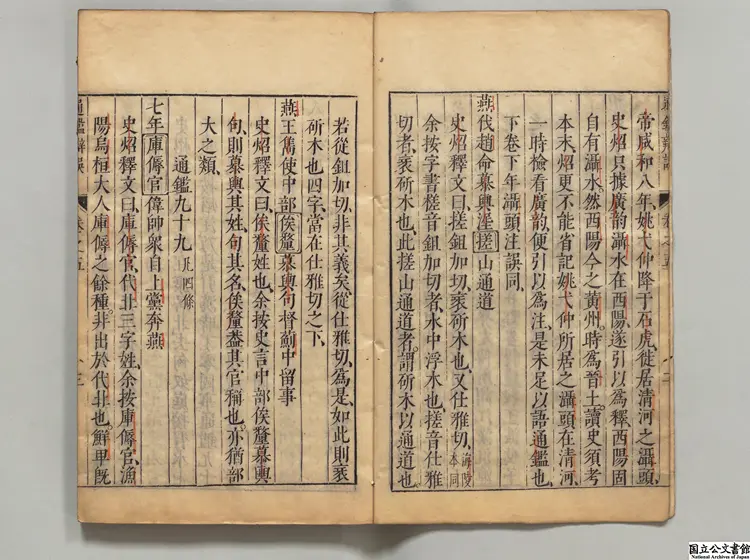 帝咸和八年姚弋仲降于石虎徙居清河之灄頭
史炤只據廣韵灄水在西陽遂引以爲釋西陽固
自有灄水然西陽今之黄州時爲晉土讀史須考
本末炤更不能省記姚弋仲所居之灄頭在清河
一時檢看廣韵便引以爲注是未足以語通鑑也
下卷下年灄頭注誤同
燕伐趙命慕輿埿搓山通道
史炤釋文曰搓鉏加切衺斫木也又仕雅切海陵本同
余按字書槎音鉏加切者水中浮木也搓音仕雅
切者衺斫木也此搓山通道者謂斫木以通道也
若從鉏加切非其義矣從仕雅切爲是如此則衺
斫木也四字當在仕雅切之下
燕王雋使中部俟釐慕輿句督薊中留事
史炤釋文曰俟釐姓也余按史言中部俟釐慕輿
句則慕輿其姓句其名俟釐葢其官稱也亦猶部
大之類
通鑑九十九 凡四條
七年庫傉官偉帥衆自上黨奔燕
史炤釋文曰庫傉官代北三字姓余按庫傉官漁
陽烏桓大人庫傉之餘種非出於代北也鮮卑既
国立公文書館
National Archives of Japan